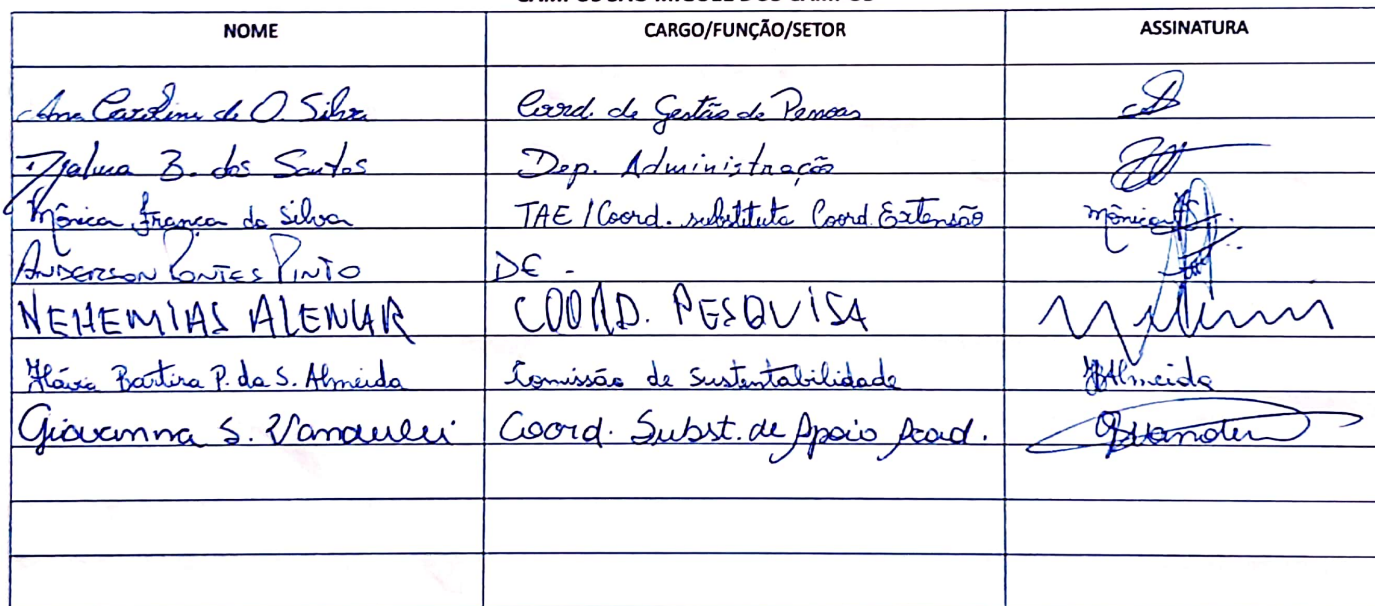 NOME CARGO/FUNÇÃO/SETOR ASSINATURA
Ana Caroline de O. Silva Coord. de Gestão de Pessoas
Djalma B. dos Santos Dep. Administração
Mônica França da Silva TAE / Coord. substituta Coord. Extensão Mônica
ANDERSON PONTES PINTO DE -
NEHEMIAS ALENCAR COORD. PESQUISA
Flávia Bartira P. da S. Almeida Comissão de Sustentabilidade FBAlmeida
Giovanna S. Coord. Subst. de Apoio Acad.